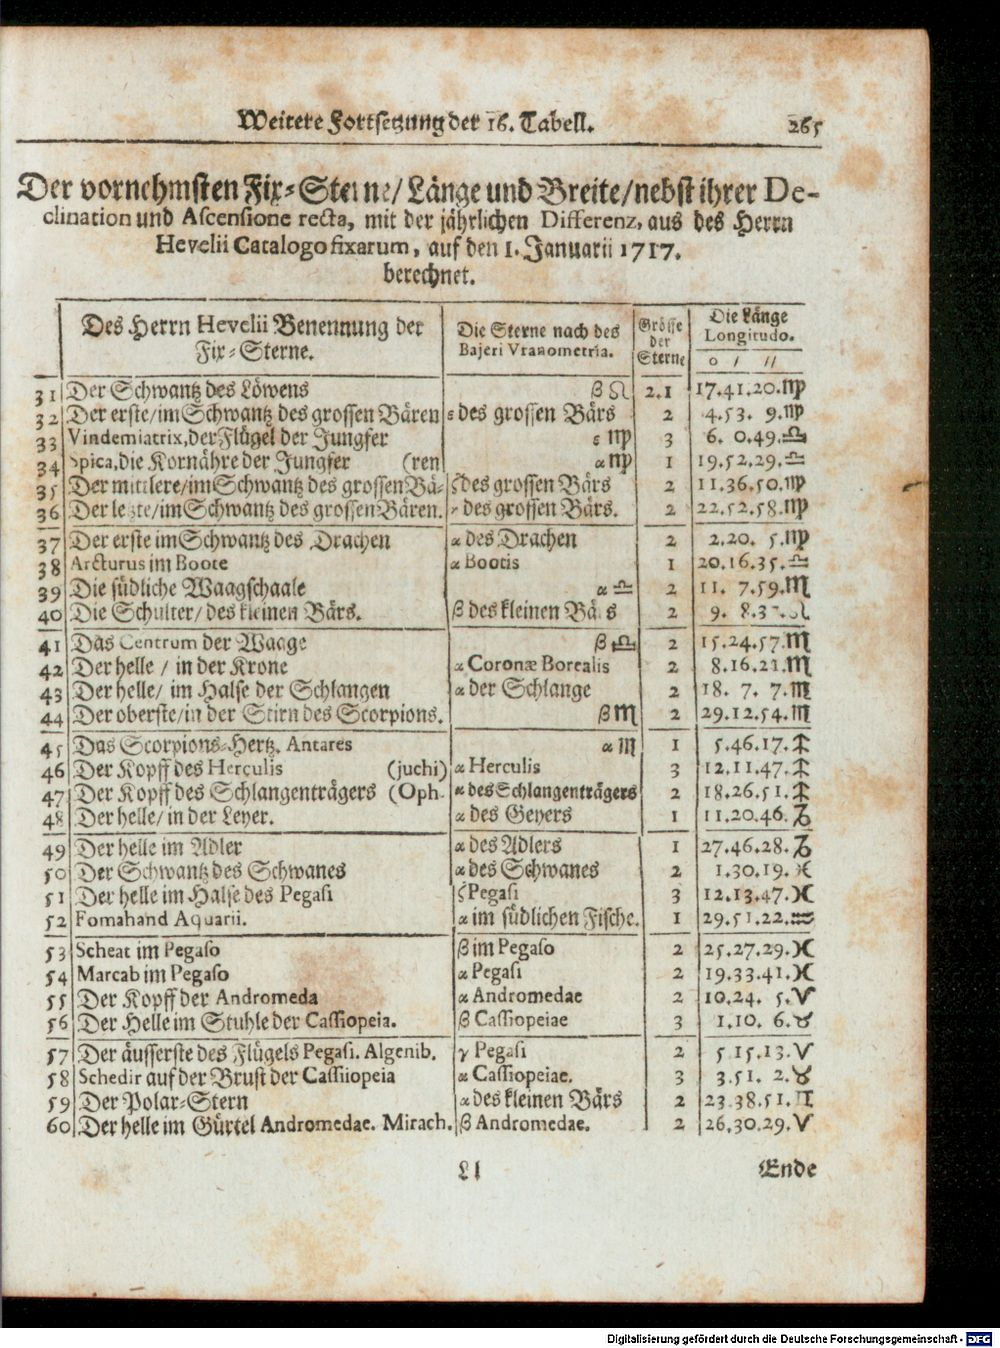 Weitere Fortsetzung der 16. Tabell. 265
Der vornehmsten Fix-Sterne/Länge und Breite/nebst ihrer De-
clination und Ascensione recta, mit der jährlichen Differenz, aus des Herrn
Hevelii Catalogo fixarum, auf den 1. Januarii 1717.
berechnet.
Des Herrn Hevelii Benennung der Fix-Sterne. | Die Sterne nach des Bajeri Vranometria. | Grösse der Sterne | Die Länge Longitudo. o / //
31 Der Schwantz des Löwens β ♌ 2.1 17.41.20.♍
32 Der erste/im Schwantz des grossen Bären ε des grossen Bärs 2 4.53. 9.♍
33 Vindemiatrix, der Flügel der Jungfer ε ♍ 3 6. 0.49.♎
34 Spica, die Kornähre der Jungfer (ren α ♍ 1 19.52.29.♎
35 Der mittlere/im Schwantz des grossen Bä- ζ des grossen Bärs 2 11.36.50.♍
36 Der letzte/im Schwantz des grossen Bären. des grossen Bärs. 2 22.52.58.♍
37 Der erste im Schwantz des Drachen α des Drachen 2 2.20. 5.♍
38 Arcturus im Boote α Bootis 1 20.16.35.♎
39 Die südliche Waagschaale α ♎ 2 11. 7.59.♏
40 Die Schulter/des kleinen Bärs. β des kleinen Bärs 2 9. 8.3 ♌
41 Das Centrum der Waage β ♎ 2 15.24.57.♏
42 Der helle / in der Krone α Coronæ Borealis 2 8.16.21.♏
43 Der helle/ im Halse der Schlangen α der Schlange 2 18. 7. 7.♏
44 Der oberste/in der Stirn des Scorpions. β♏ 2 29.12.54.♏
45 Das Scorpions-Hertz, Antares α ♏ 1 5.46.17.♐
46 Der Kopff des Herculis (juchi) α Herculis 3 12.11.47.♐
47 Der Kopff des Schlangenträgers (Oph- α des Schlangenträgers 2 18.26.51.♐
48 Der helle/ in der Leyer. α des Geyers 1 11.20.46.♑
49 Der helle im Adler α des Adlers 1 27.46.28.♑
50 Der Schwantz des Schwanes α des Schwanes 2 1.30.19.♓
51 Der helle im Halse des Pegasi ζ Pegasi 3 12.13.47.♓
52 Fomahand Aquarii. α im südlichen Fische. 1 29.51.22.♒
53 Scheat im Pegaso β im Pegaso 2 25.27.29.♓
54 Marcab im Pegaso α Pegasi 2 19.33.41.♓
55 Der Kopff der Andromeda α Andromedae 2 10.24. 5.♈
56 Der Helle im Stuhle der Cassiopeia. β Cassiopeiae 3 1.10. 6.♉
57 Der äusserste des Flügels Pegasi. Algenib. γ Pegasi 2 5 15.13.♈
58 Schedir auf der Brust der Cassiiopeia α Cassiopeiae. 3 3.51. 2.♉
59 Der Polar-Stern α des kleinen Bärs 2 23.38.51.♊
60 Der helle im Gürtel Andromedae. Mirach. β Andromedae. 2 26.30.29.♈
Ll Ende
Digitalisierung gefördert durch die Deutsche Forschungsgemeinschaft - DFG